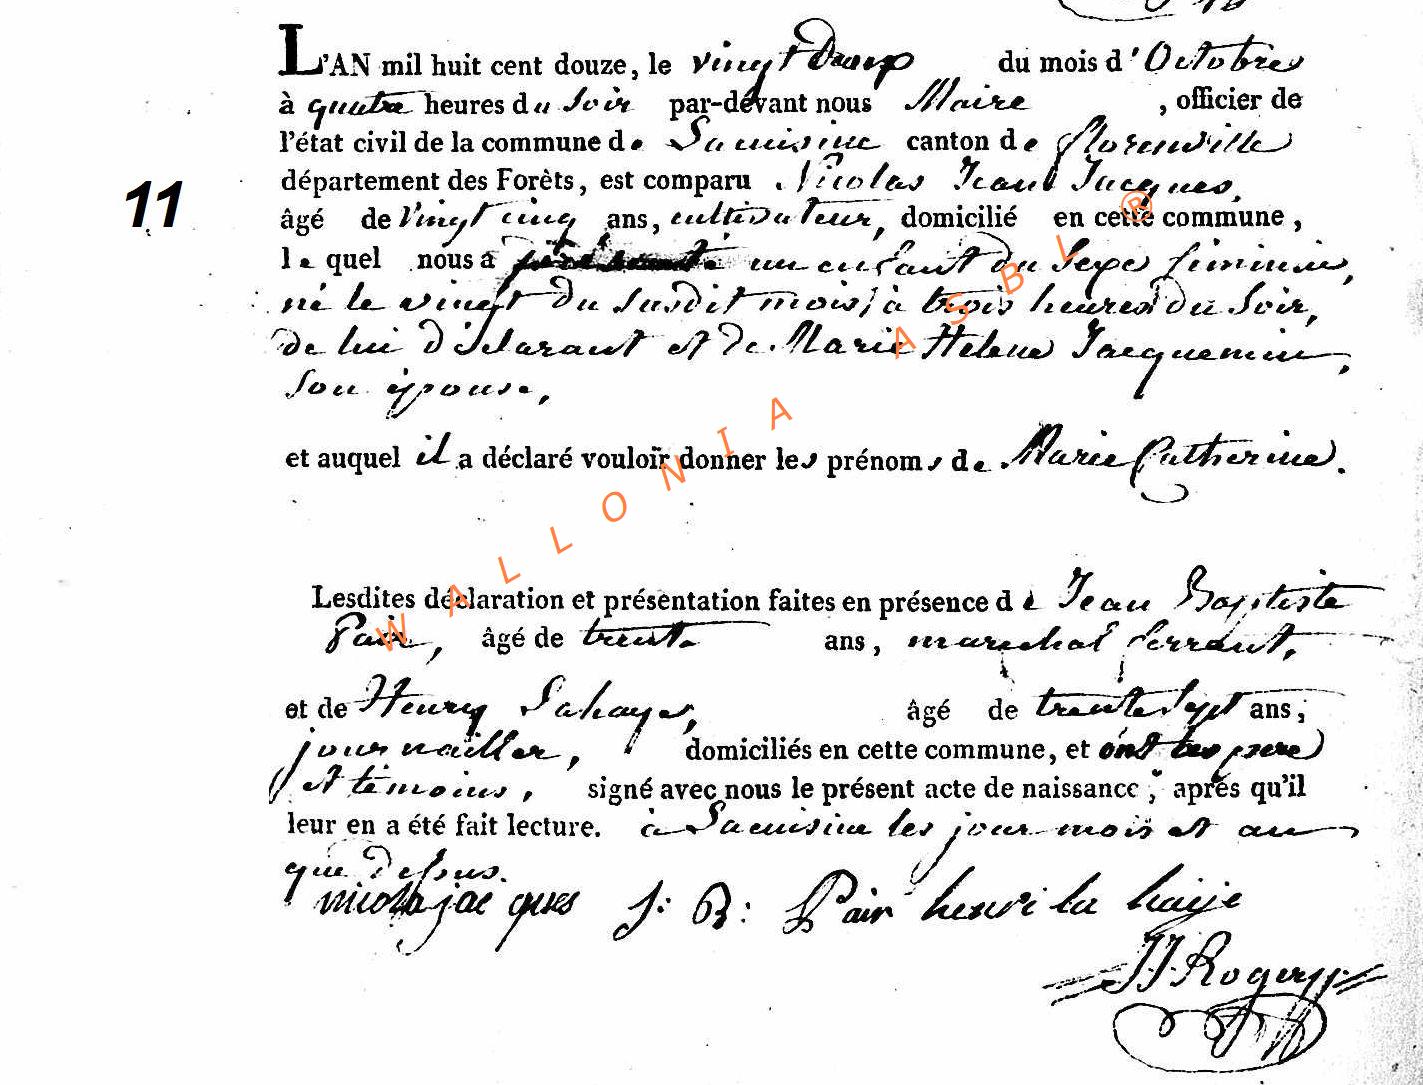 L'AN mil huit cent douze, le vingt deux du mois d'Octobre
à quatre heures du soir par-devant nous Maire , officier de
l'état civil de la commune de Lacuisine canton de florenville
département des Forêts, est comparu Nicolas Jean Jacques,
11
âgé de vingt cinq ans, cultivateur, domicilié en cette commune,
le quel nous a présenté un enfant du sexe féminin,
né le vingt du susdit mois, à trois heures du soir,
de lui déclarant et de Marie Helene Jacquemin,
son épouse,
et auquel il a déclaré vouloir donner les prénoms de Marie Catherine.
Lesdites déclaration et présentation faites en présence de Jean Baptiste
Pair, âgé de trente ans, marechal ferrant,
et de Henry Lahaye, âgé de trente sept ans,
journailler, domiciliés en cette commune, et ont les pere
et témoins, signé avec nous le présent acte de naissance, après qu'il
leur en a été fait lecture. à Lacuisine les jour mois et an
que dessus.
nicola jacques J: B: Pair henri la haije
JJ Rogery
WALLONIA ASBL ®